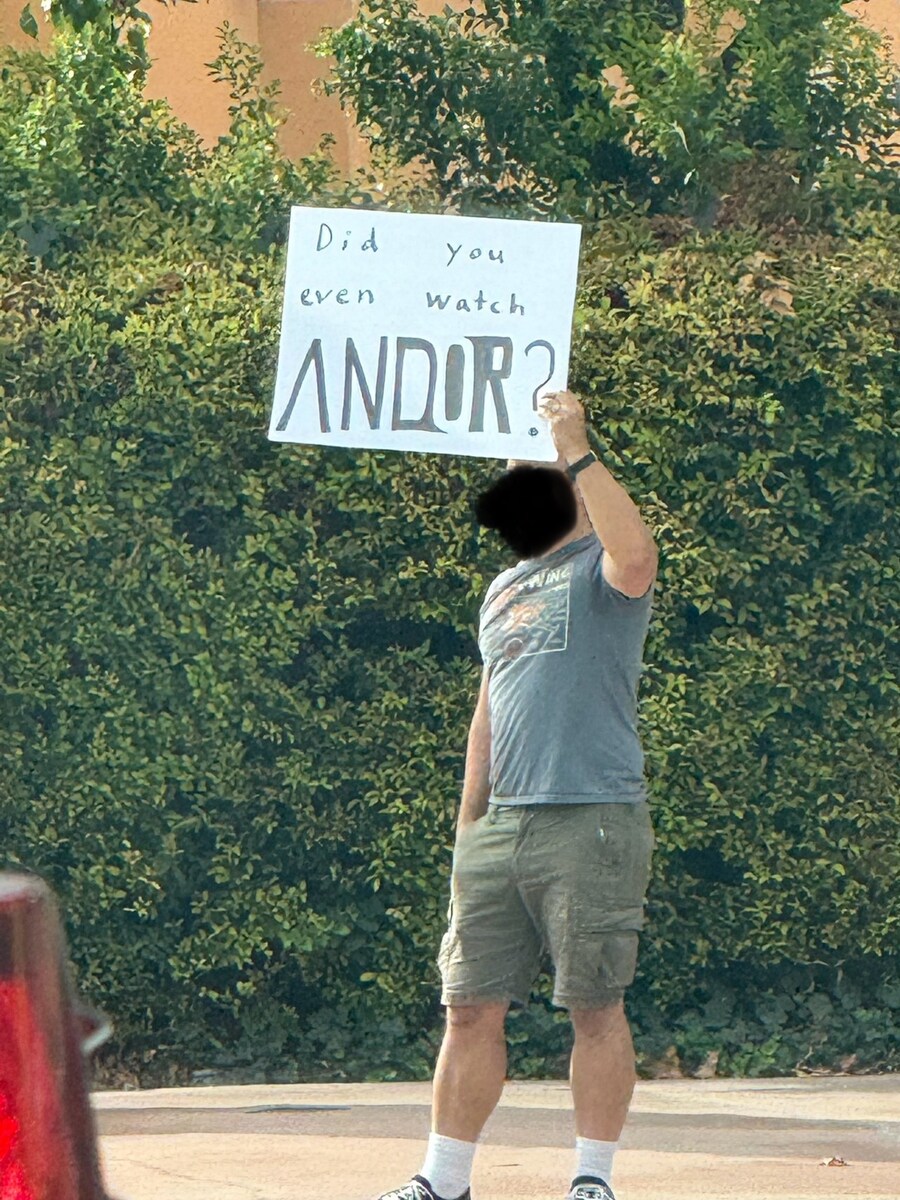 Did you
even watch
ANDOR?
WING